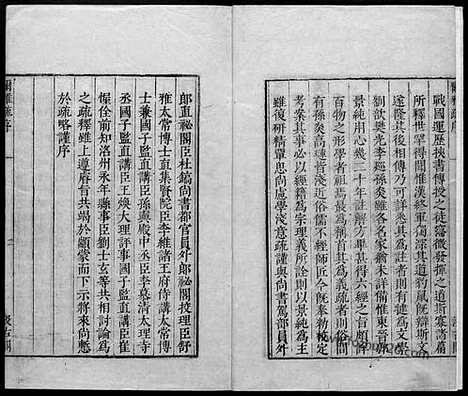 爾雅疏序
戰國運歷挾書傳授之徒寖微發揮之道斯寡諸篇
所釋世罕得聞惟漢終軍獨深其道豹鼠既辯斯文
遂隆其後相傳乃可詳悉其爲註者則有犍爲文學
劉歆樊光李巡孫炎雖各名家猶未詳備惟東晉郭
景純用心幾二十年註解方畢甚得六經之旨頗詳
百物之形學者祖焉最爲稱首其爲義疏者則俗間
有孫炎高璉皆淺近俗儒不經師匠今既奉勅校定
考案其事必以經籍爲宗理義所詮則以景純爲主
雖復研精覃思尚慮學淺意疏謹與尚書駕部員外
郎直祕閣臣杜鎬尚書都官員外郎祕閣校理臣舒
雅太常博士直集賢院臣李維諸王府侍講太常博
士兼國子監直講臣孫奭殿中丞臣李慕清大理寺
丞國子監直講臣王煥大理評事國子監直講臣崔
偓佺前知洺州永年縣事臣劉士玄等共相討論爲
之疏釋雖上遵睿旨共竭於顓蒙而下示將來尚慙
於疏略謹序
爾雅疏序
汲古閣